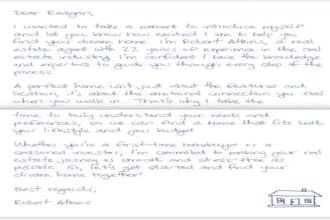 Dear Readyan,
I wanted to take a moment to introduce myself
and let you know how excited I am to help you
find your dream home. I'm Robert Atkins, a real
estate agent with 22 years of experience in the real
estate industry. I'm confident I have the knowledge
and expertise to guide you through every step of the
process.
A perfect home isn't just about the features and
location; it's also the emotional connection you feel
when you walk in. That's why I take the
time to truly understand your needs and
preferences, so we can find a home that fits both
your lifestyle and your budget.
Whether you're a first-time homebuyer or a
seasoned investor, I'm committed to making your real
estate journey as smooth and stress-free as
possible. So, let's get started and find your
dream home together!
Best regards,
Robert Atkins